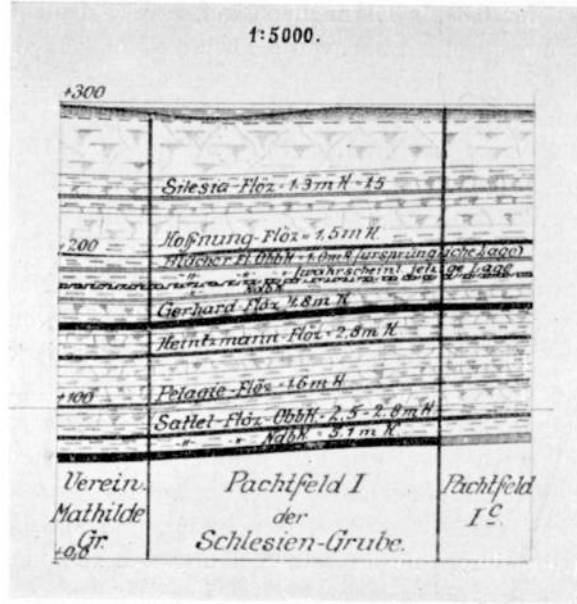 1:5000.
+300
Silesia-Flöz = 1.3 m K = 1.5
Hoffnung-Flöz = 1,5 m K.
+200
Fl. ObbK = 1.0m K (ursprüngliche Lage)
" " " (wahrscheinl. jetzige Lage
NdbK
Gerhard-Flöz 4.8m K
Heintzmann-Flöz = 2,8m K.
Pelagie-Flöz = 1.6 m K
+100
Sattel-Flöz-ObbK = 2,5 - 2.8m K
" " NdbK = 5.1 m K
Verein. Mathilde Gr.
Pachtfeld I der Schlesien-Grube.
Pachtfeld I c.
+0,0